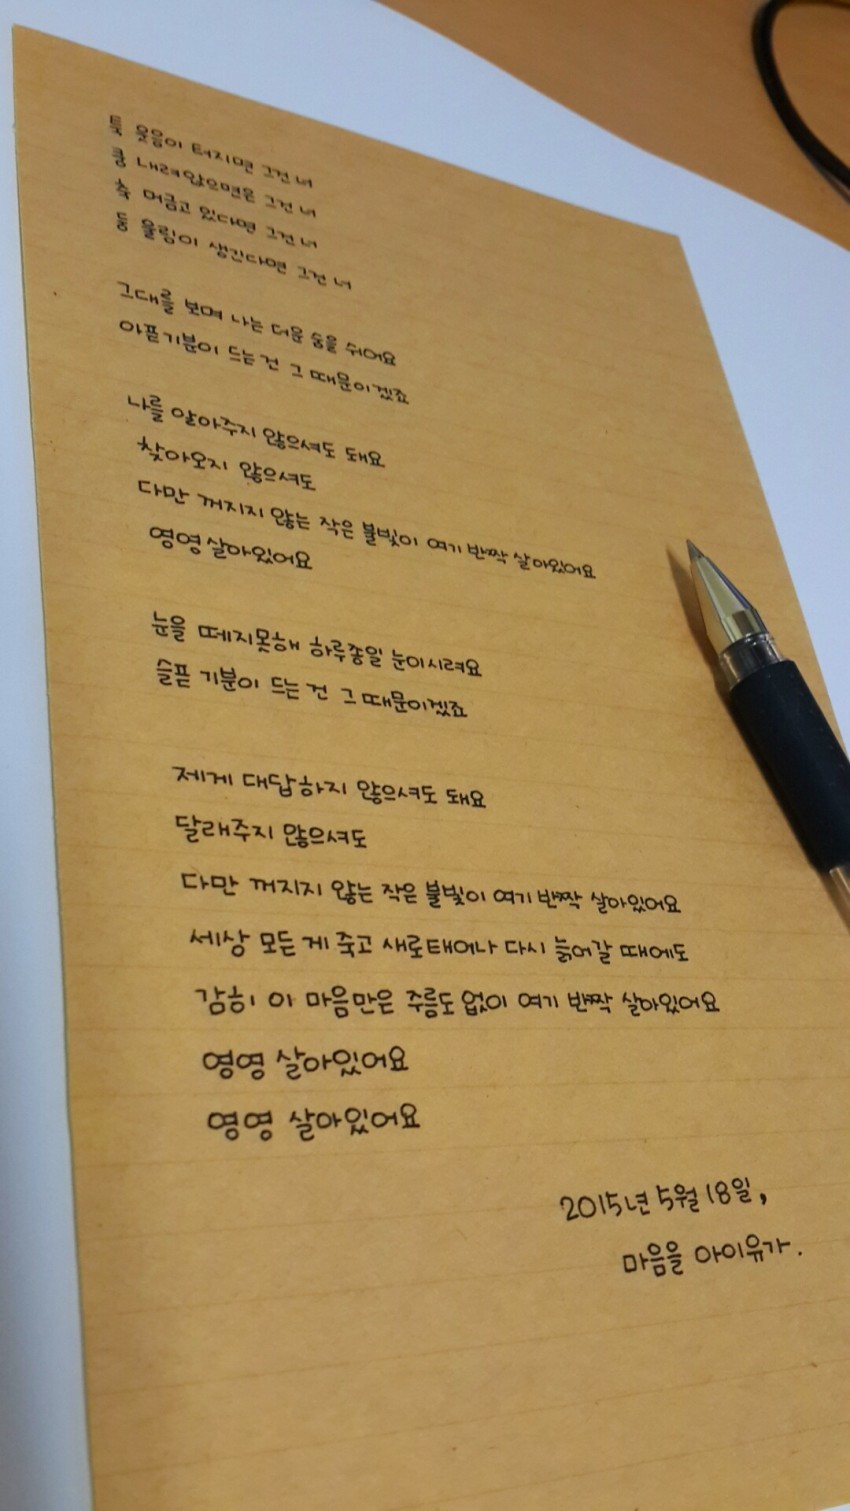 툭 웃음이 터지면 그건 너
쿵 내려앉으면은 그건 너
축 머금고 있다면 그건 너
둥 울림이 생긴다면 그건 너
그대를 보며 나는 더운 숨을 쉬어요
아픈 기분이 드는 건 그 때문이겠죠
나를 알아주지 않으셔도 돼요
찾아오지 않으셔도
다만 꺼지지 않는 작은 불빛이 여기 반짝 살아있어요
영영 살아있어요
눈을 떼지 못해 하루종일 눈이 시려요
슬픈 기분이 드는 건 그 때문이겠죠
제게 대답하지 않으셔도 돼요
달래주지 않으셔도
다만 꺼지지 않는 작은 불빛이 여기 반짝 살아있어요
세상 모든 게 죽고 새로 태어나 다시 늙어갈 때에도
감히 이 마음만은 주름도 없이 여기 반짝 살아있어요
영영 살아있어요
영영 살아있어요
2015년 5월 18일,
마음을 아이유가.